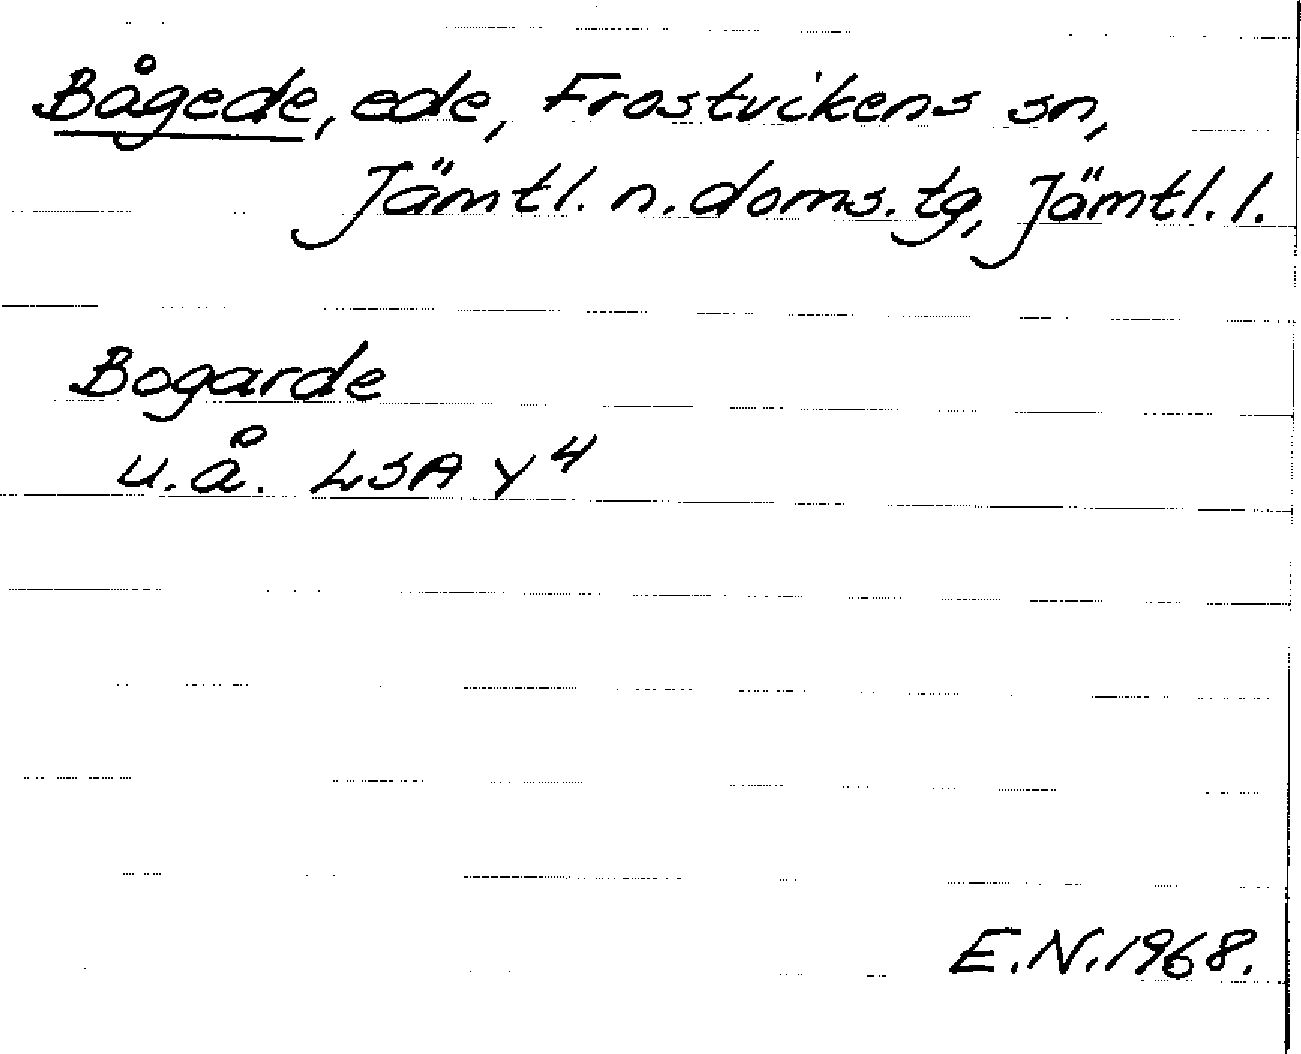 Bågede, ede, Frostvikens sn,
Jämtl. n. doms. tg, Jämtl. l.
Bogarde
u.å. LSA Y 4
E.N. 1968.